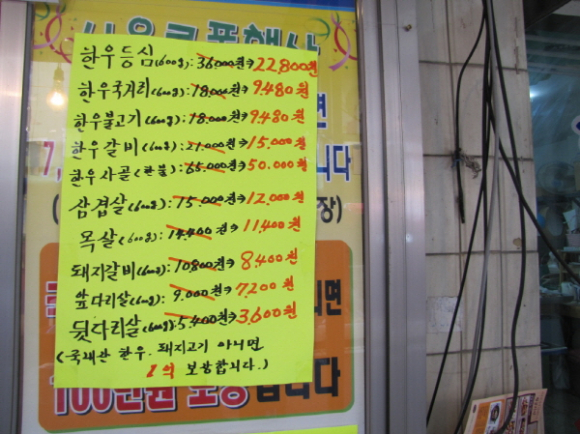 한우등심(600g): 36.000원→22,800원
한우국거리(600g): 18.000원→9.480원
한우불고기(600g): 18.000원→9.480원
한우갈비(600g): 21.000원→15.000원
한우사골(한벌): 65.000원→50.000원
삼겹살(600g): 15.000원→12.000원
목살(600g): 14.400원→11.400원
돼지갈비(600g): 10800원→8.400원
앞다리살(600g): 9.000원→7.200원
뒷다리살(600g): 5.400원→3.600원
(국내산 한우. 돼지고기 아니면
1억 보상합니다.)
100만원 보상 합니다